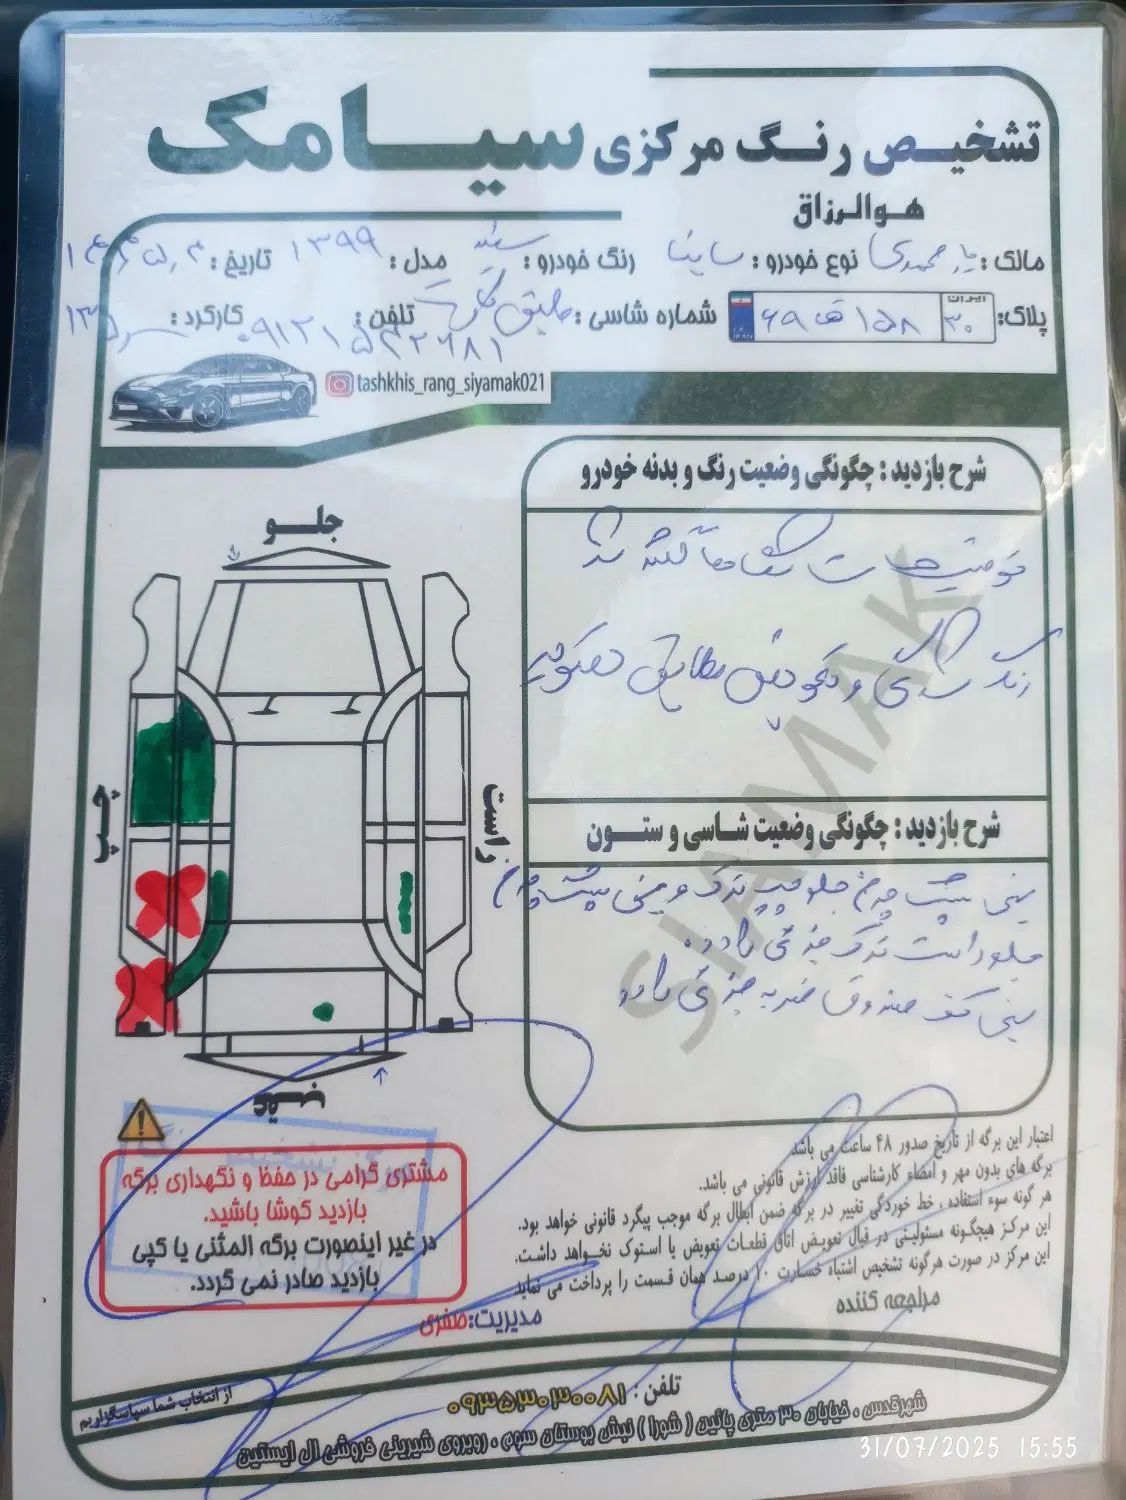 تشخیص رنگ مرکزی سیامک
هوالرزاق
مالک: یارمحمدی نوع خودرو: ساینا رنگ خودرو: سفید مدل: ۱۳۹۹ تاریخ:
پلاک: ایران ۳۰ ۱۵۸ ق ۶۹ شماره شاسی: طبق کارت تلفن: ۰۹۱۲۱۵۴۲۶۸۱ کارکرد:
I.R. IRAN
tashkhis_rang_siyamak021
شرح بازدید: چگونگی وضعیت رنگ و بدنه خودرو
توضیحات شفاهاً گفته شد
رنگ شدگی و تعویض مطابق
شرح بازدید: چگونگی وضعیت شاسی و ستون
سینی پشت چرخ جلو چپ ترک و سینی
جلو راست ترک جزئی دارد.
سینی کف صندوق ضربه جزئی دارد
جلو
چپ
راست
عقب
SIAMAK
مشتری گرامی در حفظ و نگهداری برگه
بازدید کوشا باشید.
در غیر اینصورت برگه المثنی یا کپی
بازدید صادر نمی گردد.
اعتبار این برگه از تاریخ صدور ۴۸ ساعت می باشد
برگه های بدون مهر و امضاء کارشناسی فاقد ارزش قانونی می باشد.
هر گونه سوء استفاده، خط خوردگی تغییر در برگه ضمن ابطال برگه موجب پیگرد قانونی خواهد بود.
این مرکز هیچگونه مسئولیتی در قبال تعویض اتاق قطعات تعویض یا استوک نخواهد داشت.
این مرکز در صورت هرگونه تشخیص اشتباه خسارت ۱۰ درصد همان قسمت را پرداخت می نماید
مراجعه کننده
مدیریت: صفری
از انتخاب شما سپاسگزاریم
تلفن: ۰۹۳۵۳۰۳۰۰۸۱
شهرقدس، خیابان ۳۰ متری پائین (شورا) نبش بوستان سوم، روبروی شیرینی فروشی ال ایستین
31/07/2025 15:55